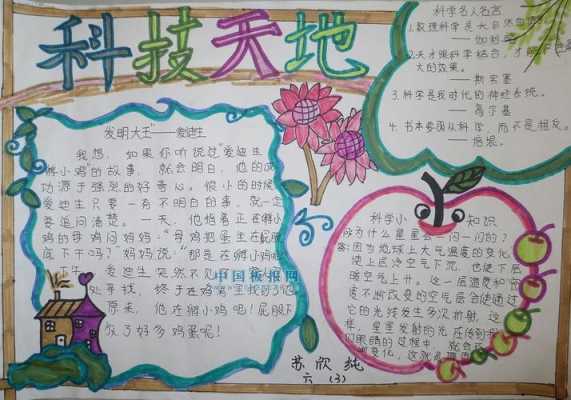 科技天地
科学名人名言
1.数理科学是大自然的语言。
——伽利略
2.天才跟科学结合，才能
大的效果。
——斯宾塞
3.科学是我时代的神经系统。
——高尔基
4.书本要因从科学，而不是相反。
——培根。
发明大王"——爱迪生
我想，如果你听说过"爱迪生
孵小鸡"的故事，就会明白，他的成
功源于强烈的好奇心。很小的时候
爱迪生只要一有不明白的事，就一定
要追问清楚。一天，他指着正在孵小
鸡的母鸡问妈妈："母鸡把蛋坐在屁股
底下干吗？"妈妈说："那是在孵小鸡
午，爱迪生突然不见
处寻找，终于在鸡窝里找到了他
原来，他在孵小鸡呢！屁股下
放了好多鸡蛋呢！
中国板报网
科学小知识
问为什么星星会一闪一闪的？
答:因为地球上大气温度的变化
使上层冷空气下沉，也使下层
暖空气上升。这一层温度和密
度不断改变的空气层会使通过
它的光线发生多次折射，这
样，星星发射的光在传到
们眼睛的过程中，就会
变化，这就
苏欣纯
六（3）